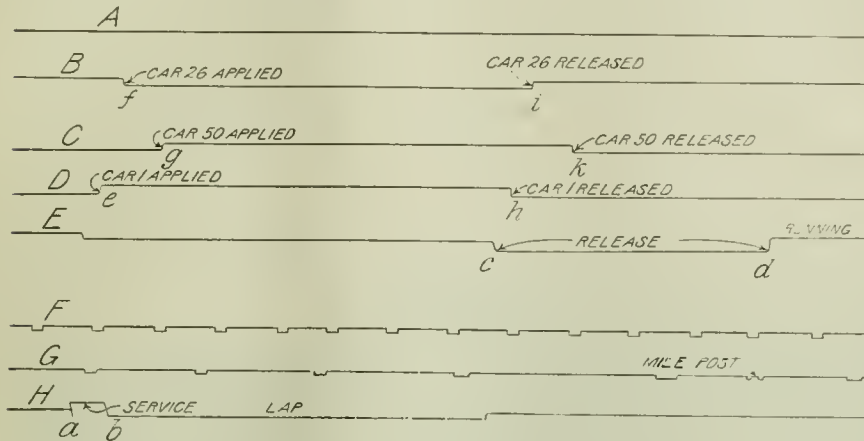 A
B
CAR 26 APPLIED
CAR 26 RELEASED
f
i
C
CAR 50 APPLIED
CAR 50 RELEASED
g
k
D
CAR 1 APPLIED
CAR 1 RELEASED
e
h
E
RELEASE
RUNNING
c
d
F
G
MILE POST
H
SERVICE
LAP
a
b